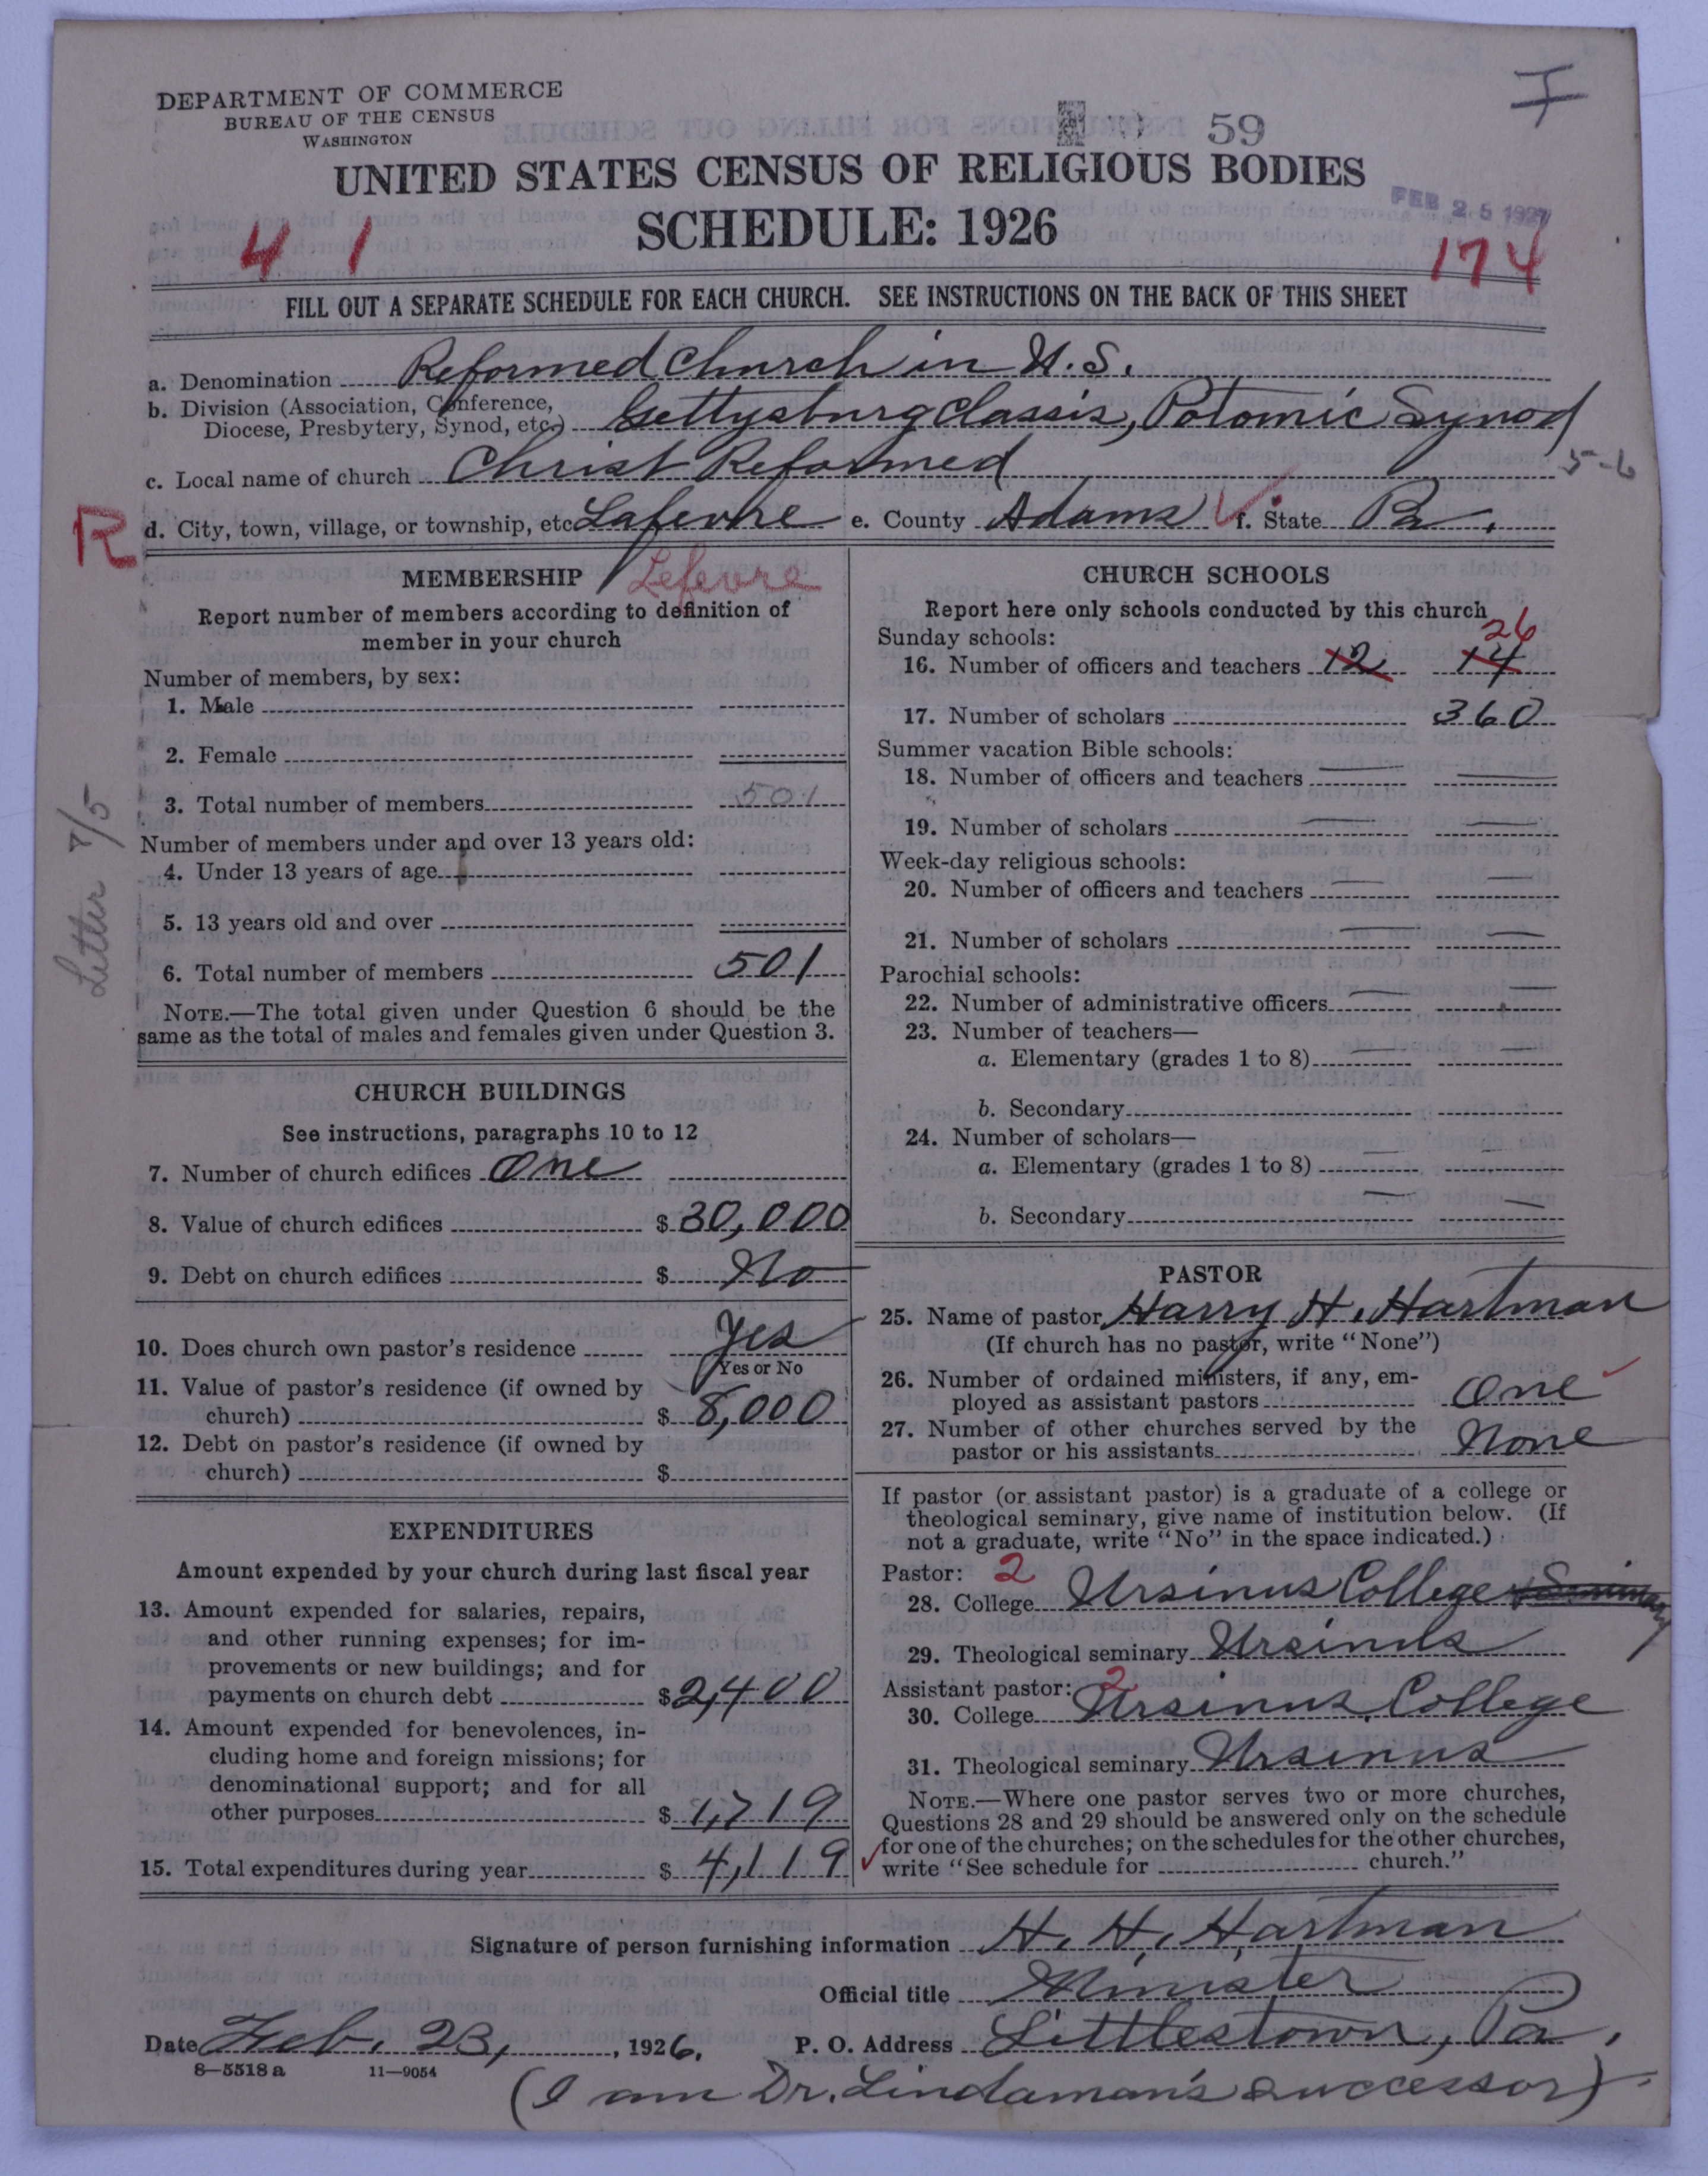 DEPARTMENT OF COMMERCE
BUREAU OF THE CENSUS
WASHINGTON
59
UNITED STATES CENSUS OF RELIGIOUS BODIES
SCHEDULE: 1926
FEB 25 1927
4 1
174
FILL OUT A SEPARATE SCHEDULE FOR EACH CHURCH. SEE INSTRUCTIONS ON THE BACK OF THIS SHEET
a. Denomination Reformed Church in U.S.
b. Division (Association, Conference,
Diocese, Presbytery, Synod, etc.) Gettysburg Classis, Potomic Synod
5-6
c. Local name of church Christ Reformed
R
d. City, town, village, or township, etc. Lafevhe e. County Adams f. State Pa.
MEMBERSHIP Lefevre
Report number of members according to definition of
member in your church
Number of members, by sex:
1. Male
2. Female
3. Total number of members 501
Number of members under and over 13 years old:
4. Under 13 years of age
5. 13 years old and over
6. Total number of members 501
NOTE.—The total given under Question 6 should be the
same as the total of males and females given under Question 3.
Letter 7/5
CHURCH BUILDINGS
See instructions, paragraphs 10 to 12
7. Number of church edifices One
8. Value of church edifices $ 30,000
9. Debt on church edifices $ No
10. Does church own pastor's residence Yes
Yes or No
11. Value of pastor's residence (if owned by
church) $ 8,000
12. Debt on pastor's residence (if owned by
church) $
EXPENDITURES
Amount expended by your church during last fiscal year
13. Amount expended for salaries, repairs,
and other running expenses; for im-
provements or new buildings; and for
payments on church debt $ 2,400
14. Amount expended for benevolences, in-
cluding home and foreign missions; for
denominational support; and for all
other purposes $ 1,719
15. Total expenditures during year $ 4,119
CHURCH SCHOOLS
Report here only schools conducted by this church
Sunday schools: 26
16. Number of officers and teachers 12 14
17. Number of scholars 360
Summer vacation Bible schools:
18. Number of officers and teachers
19. Number of scholars
Week-day religious schools:
20. Number of officers and teachers
21. Number of scholars
Parochial schools:
22. Number of administrative officers
23. Number of teachers—
a. Elementary (grades 1 to 8)
b. Secondary
24. Number of scholars—
a. Elementary (grades 1 to 8)
b. Secondary
PASTOR
25. Name of pastor Harry H. Hartman
(If church has no pastor, write "None")
26. Number of ordained ministers, if any, em-
ployed as assistant pastors One
27. Number of other churches served by the
pastor or his assistants None
If pastor (or assistant pastor) is a graduate of a college or
theological seminary, give name of institution below. (If
not a graduate, write "No" in the space indicated.)
Pastor: 2
28. College Ursinus College
29. Theological seminary Ursinus
Assistant pastor: 2
30. College Ursinus College
31. Theological seminary Ursinus
NOTE.—Where one pastor serves two or more churches,
Questions 28 and 29 should be answered only on the schedule
for one of the churches; on the schedules for the other churches,
write "See schedule for church."
Signature of person furnishing information H. H. Hartman
Official title Minister
Date Feb. 23, 1926. P. O. Address Littlestown, Pa.
8—5518 a 11—9054
(I am Dr. Lindaman's successor)